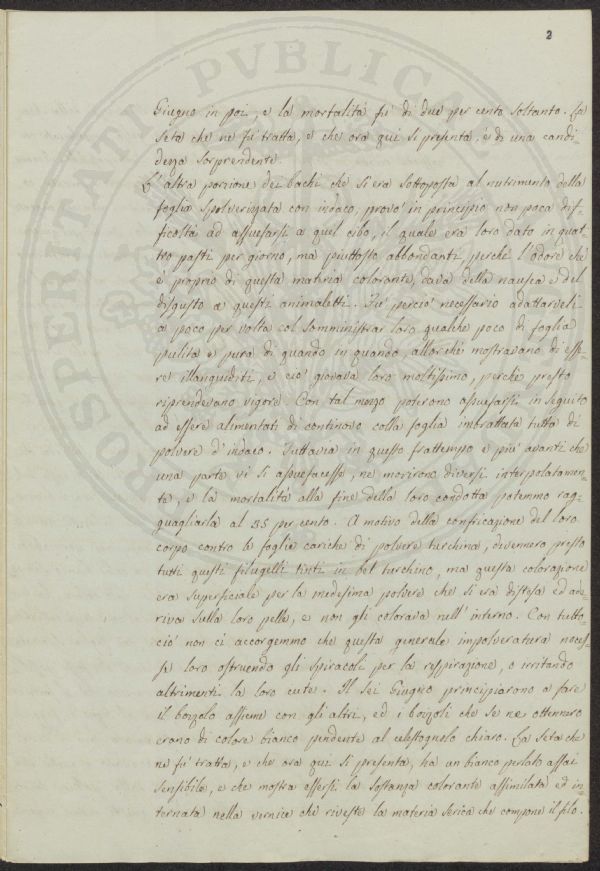 2
Giugno in poi, e la mortalità fu' di due per cento soltanto. La
seta che ne fu' tratta, e che ora qui si presenta, è di una candi=
dezza sorprendente.
L'altra porzione dei bachi che si era sottoposta al nutrimento della
foglia spolverizzata con indaco, provò in principio non poca dif=
ficoltà ad assuefarsi a quel cibo, il quale era loro dato in quat=
tro pasti per giorno, ma piuttosto abbondanti, perchè l'odore che
è proprio di questa materia colorante, dava della nausea e del
disgusto a questi animaletti. Fu' perciò necessario adattarveli
a poco per volta col somministrar loro qualche poco di foglia
pulita e pura di quando in quando, allorchè mostravano di esse=
re illanguiditi, e ciò giovava loro moltissimo, perchè presto
riprendevano vigore. Con tal mezzo poterono assuefarsi in seguito
ad essere alimentati di continovo colla foglia imbrattata tutta di
polvere d'indaco. Tuttavia in questo frattempo e più avanti che
una parte vi si assuefacesse, ne morirono diversi interpolatamen=
te, e la mortalità alla fine della loro condotta potemmo rag=
guagliarla al 35 per cento. A motivo della confricazione del loro
corpo contro le foglie cariche di polvere turchina, divennero presto
tutti questi filugelli tinti in bel turchino, ma questa colorazione
era superficiale per la medesima polvere che si era distesa ed ade=
riva sulla loro pelle, e non gli colorava nell'interno. Con tutto
ciò non ci accorgemmo che questa generale impolveratura noces=
se loro ostruendo gli spiracoli per la respirazione, o irritando
altrimenti la loro cute. Il sei Giugno principiarono a fare
il bozzolo assieme con gli altri, ed i bozzoli che se ne ottennero
erano di colore bianco pendente al celestognolo chiaro. La seta che
ne fu' tratta, e che ora qui si presenta, ha un bianco perlato assai
sensibile, e che mostra essersi la sostanza colorante assimilata ed in=
ternata nella vernice che riveste la materia serica che compone il filo.
PROSPERITATI PUBLICAE